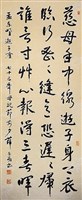 慈母手中線遊子身上衣
臨行密密縫意恐遲遲歸
誰言寸草心報得三春暉